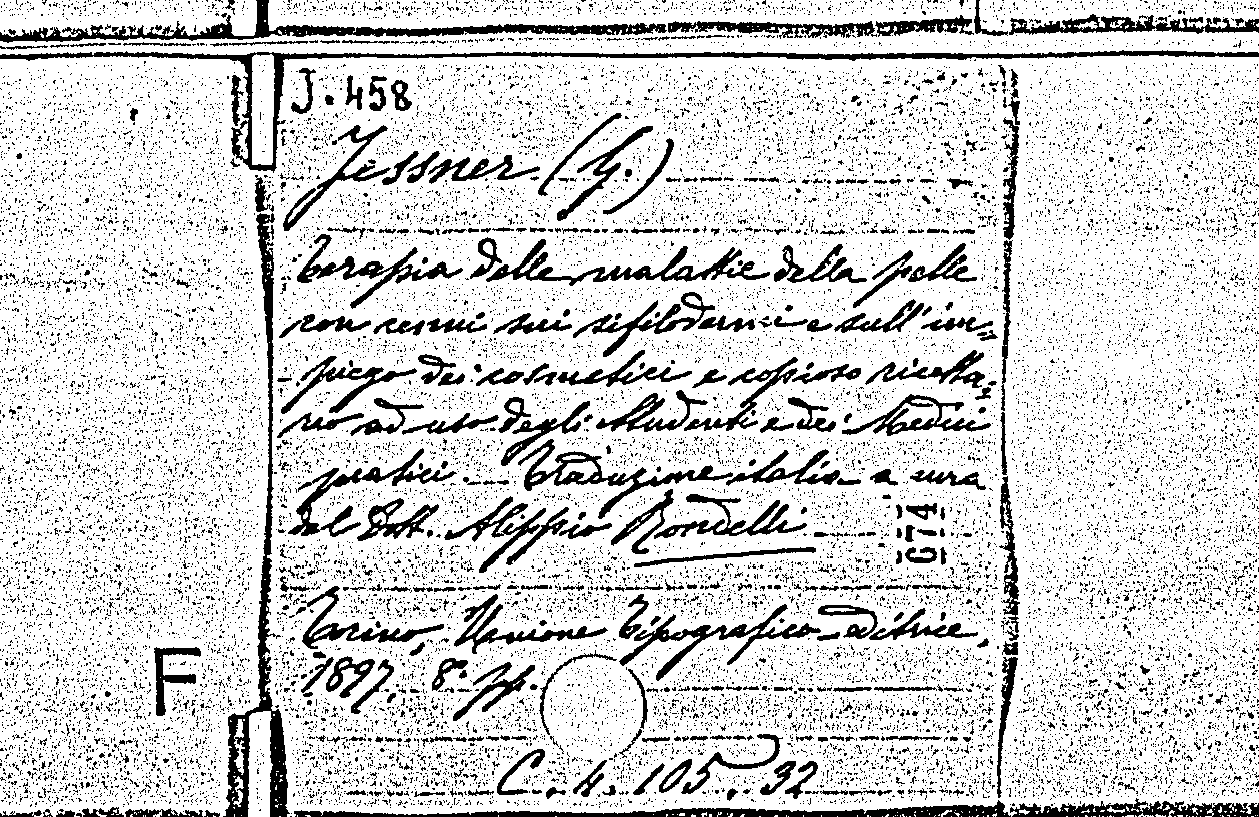 J. 458
Jessner (S.)
Terapia delle malattie della pelle
con cenni sui sifilodermi e sull'im=
piego dei cosmetici e copioso ricetta=
rio ad uso degli Studenti e dei Medici
pratici. - Traduzione italia. a cura
del Dott. Alippio Rondelli
G74
Torino, Unione Tipografico-editrice,
1897. 8º. pp.
F
C. 4. 105. 32